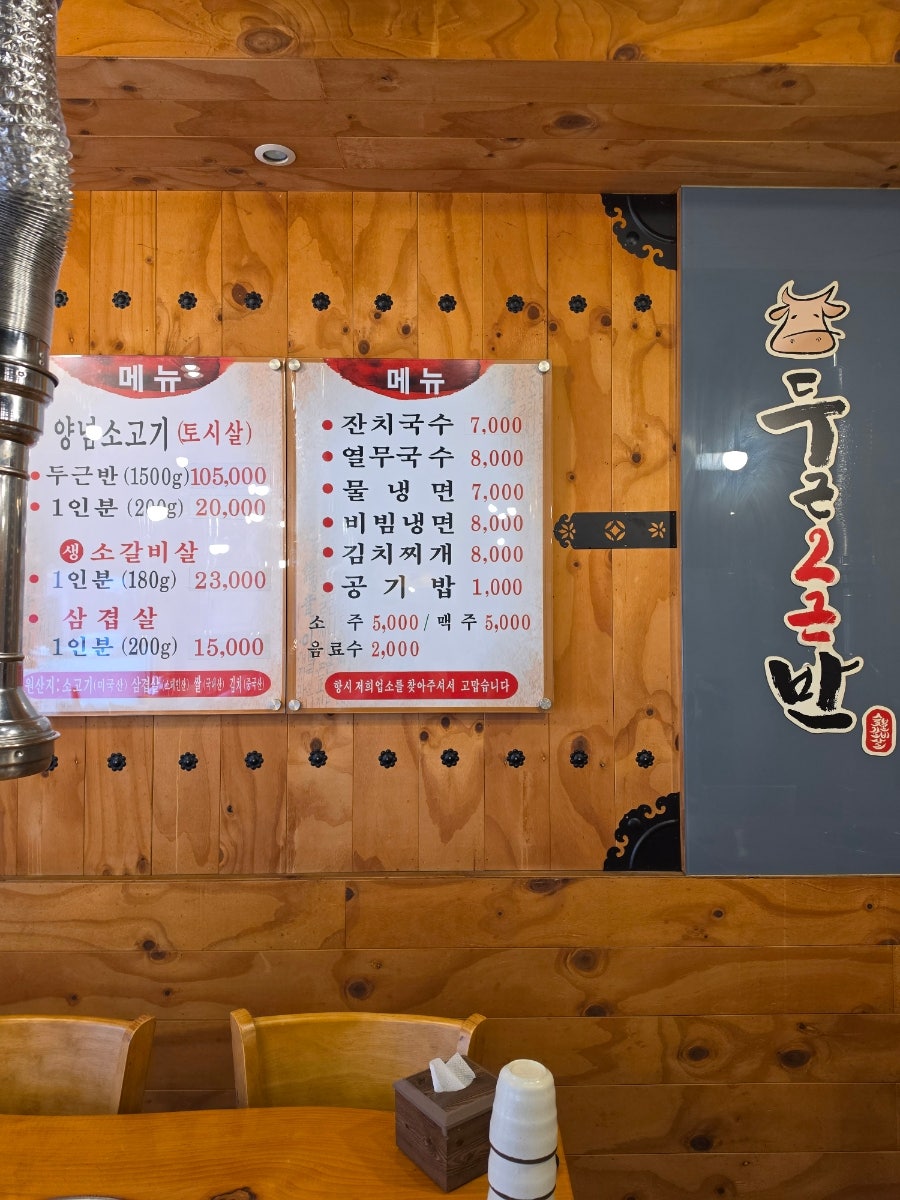 메뉴
양념소고기 (토시살)
두근반 (1500g) 105,000
1인분 (200g) 20,000
생 소갈비살
1인분 (180g) 23,000
삼겹살
1인분 (200g) 15,000
원산지: 소고기(미국산) 삼겹살(스페인산) 쌀(국내산) 김치(중국산)
메뉴
잔치국수 7,000
열무국수 8,000
물냉면 7,000
비빔냉면 8,000
김치찌개 8,000
공기밥 1,000
소주 5,000 / 맥주 5,000
음료수 2,000
항시 저희업소를 찾아주셔서 고맙습니다
두근2근반
소갈비살